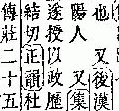 也又後漢
陽人又集
遂授以政歷
結切正韻杜
傳莊二十五